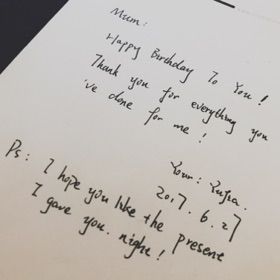 Mum:
Happy Birthday To You!
Thank you for everything you
've done for me!
Your: Yujia.
2017. 6. 27
Ps: I hope you like the present
I gave you. night!